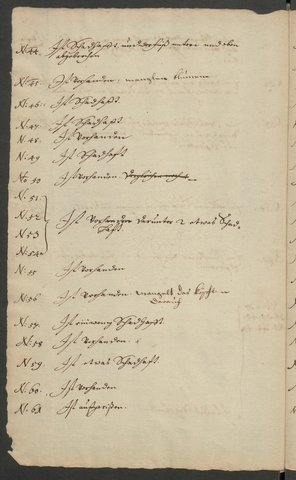 N: 44. Ist Schadhafft, und der fuß unten und oben
abgebrochen
N: 45. Ist Vorhanden, mangeln
N: 46. Ist Schadhafft.
N: 47. Ist Schadhafft
N: 48. Ist Vorhanden
N: 49 Ist Schadhafft
No 50 Ist Vorhanden
N. 51.
N. 52 Ist Vorhanden darunter 2 etwas Schad-
hafft.
N 53
N: 54
N: 55 Ist Vorhanden
N: 56 Ist Vorhanden mangelt das
N: 57. Ist Schadhafft.
N: 58 Ist Vorhanden.
N: 59. Ist etwas Schadhafft.
N: 60. Ist Vorhanden
N: 61 Ist